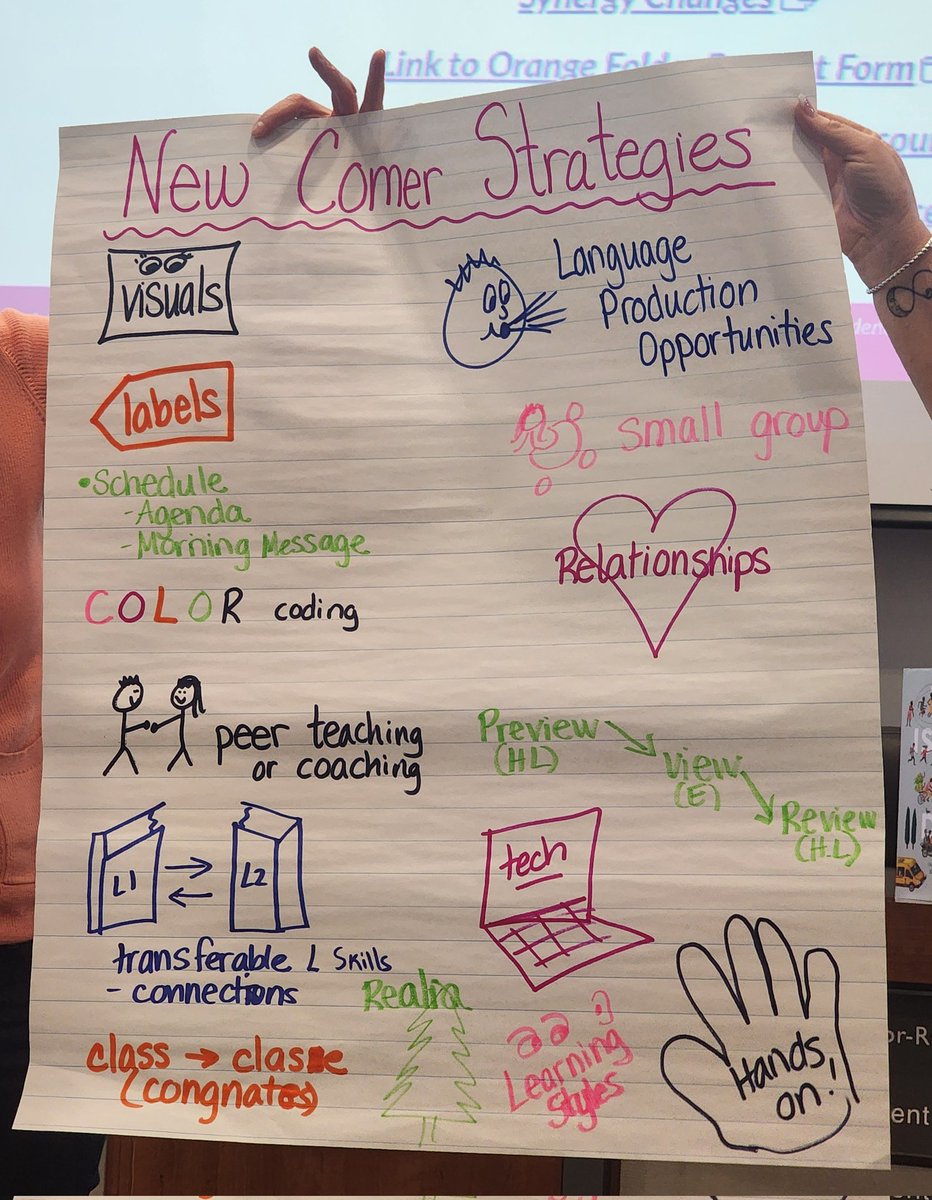 Synergy Changes
Link to Orange
Form
New Comer Strategies
visuals
labels
•Schedule
-Agenda
-Morning Message
COLOR coding
peer teaching
or coaching
L1
L2
transferable L Skills
- connections
class → classe
(congnates)
Language
Production
Opportunities
small group
Relationships
Preview
(HL)
View
(E)
Review
(H.L)
tech
Realia
Learning
Styles
Hands
on!